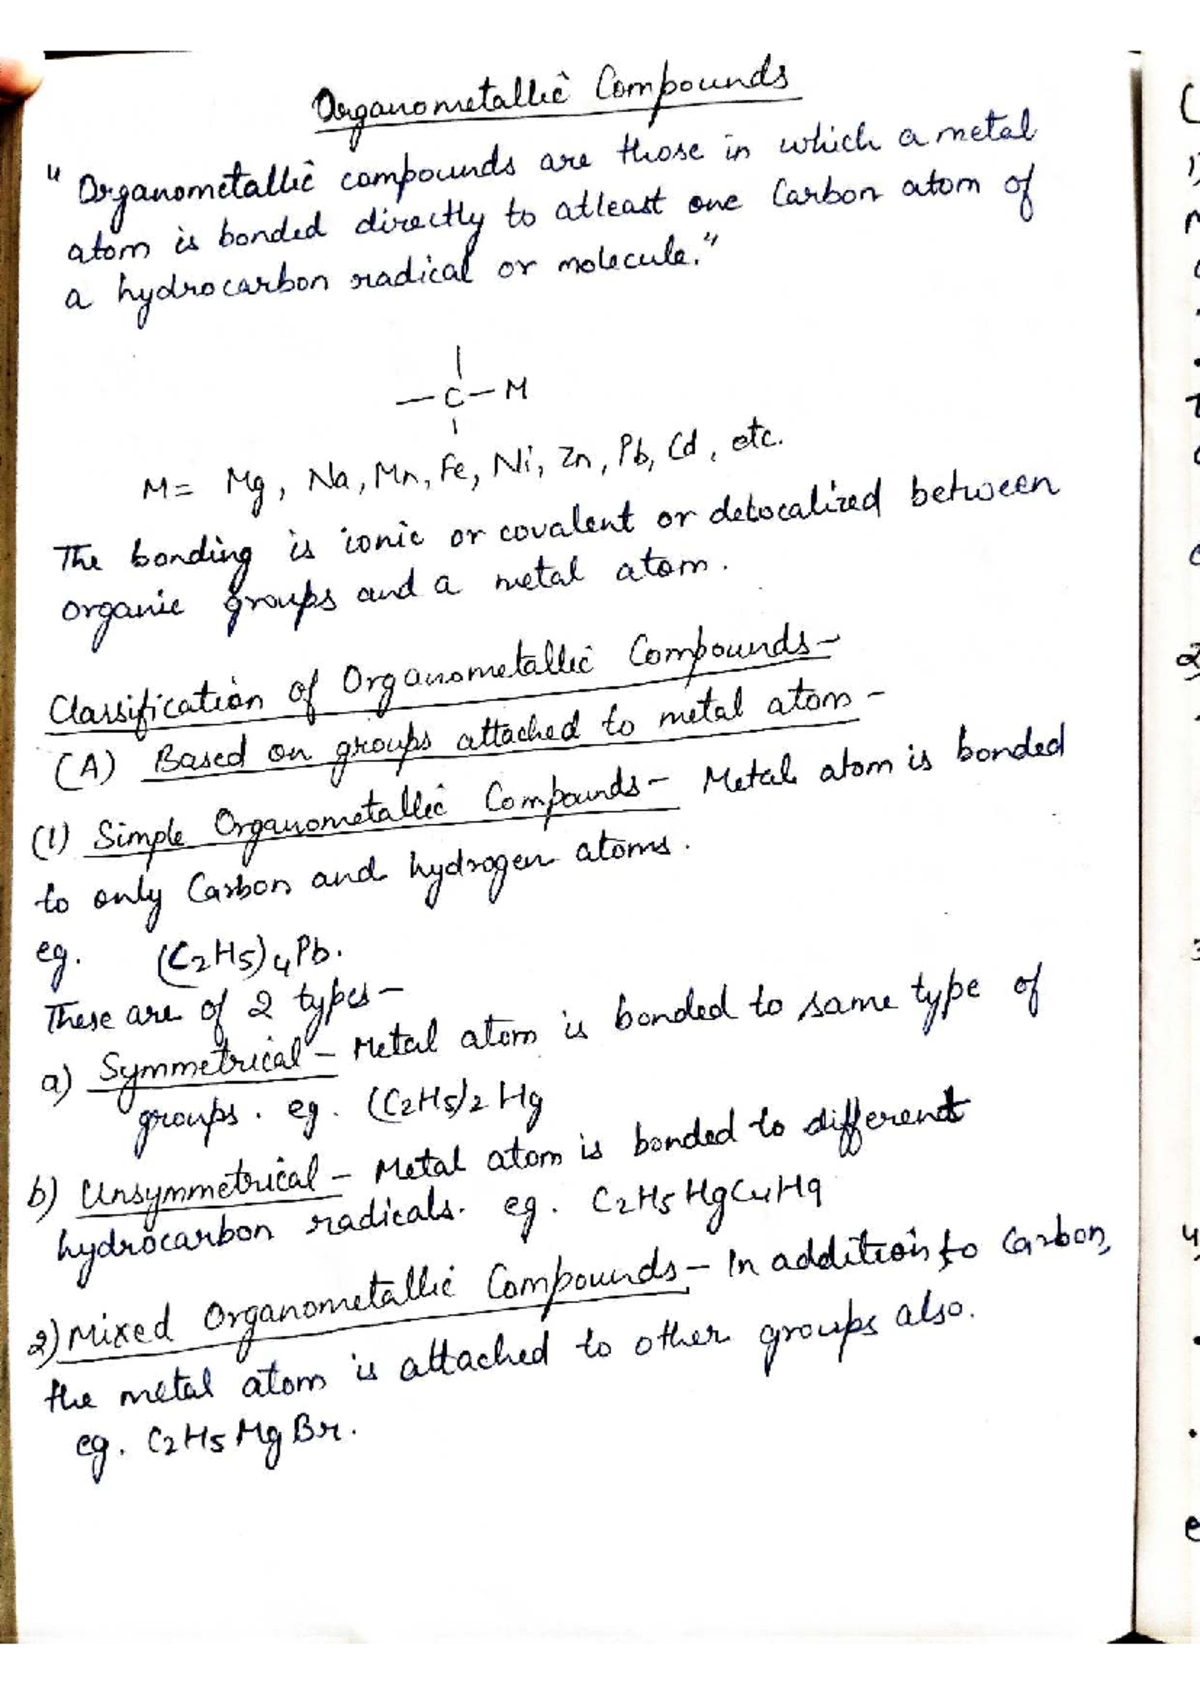 Organometallic Compounds
"Organometallic compounds are those in which a metal
atom is bonded directly to atleast one Carbon atom of
a hydrocarbon radical or molecule."
— C — M
M = Mg, Na, Mn, Fe, Ni, Zn, Pb, Cd, etc.
The bonding is ionic or covalent or delocalized between
organic groups and a metal atom.
Classification of Organometallic Compounds-
(A) Based on groups attached to metal atom -
(1) Simple Organometallic Compounds - Metal atom is bonded
to only Carbon and hydrogen atoms.
eg. (C2H5)4Pb.
These are of 2 types-
a) Symmetrical - Metal atom is bonded to same type of
groups. eg. (C2H5)2 Hg
b) Unsymmetrical - Metal atom is bonded to different
hydrocarbon radicals. eg. C2H5HgC4H9
2) Mixed Organometallic Compounds - In addition to Carbon,
the metal atom is attached to other groups also.
eg. C2H5MgBr.